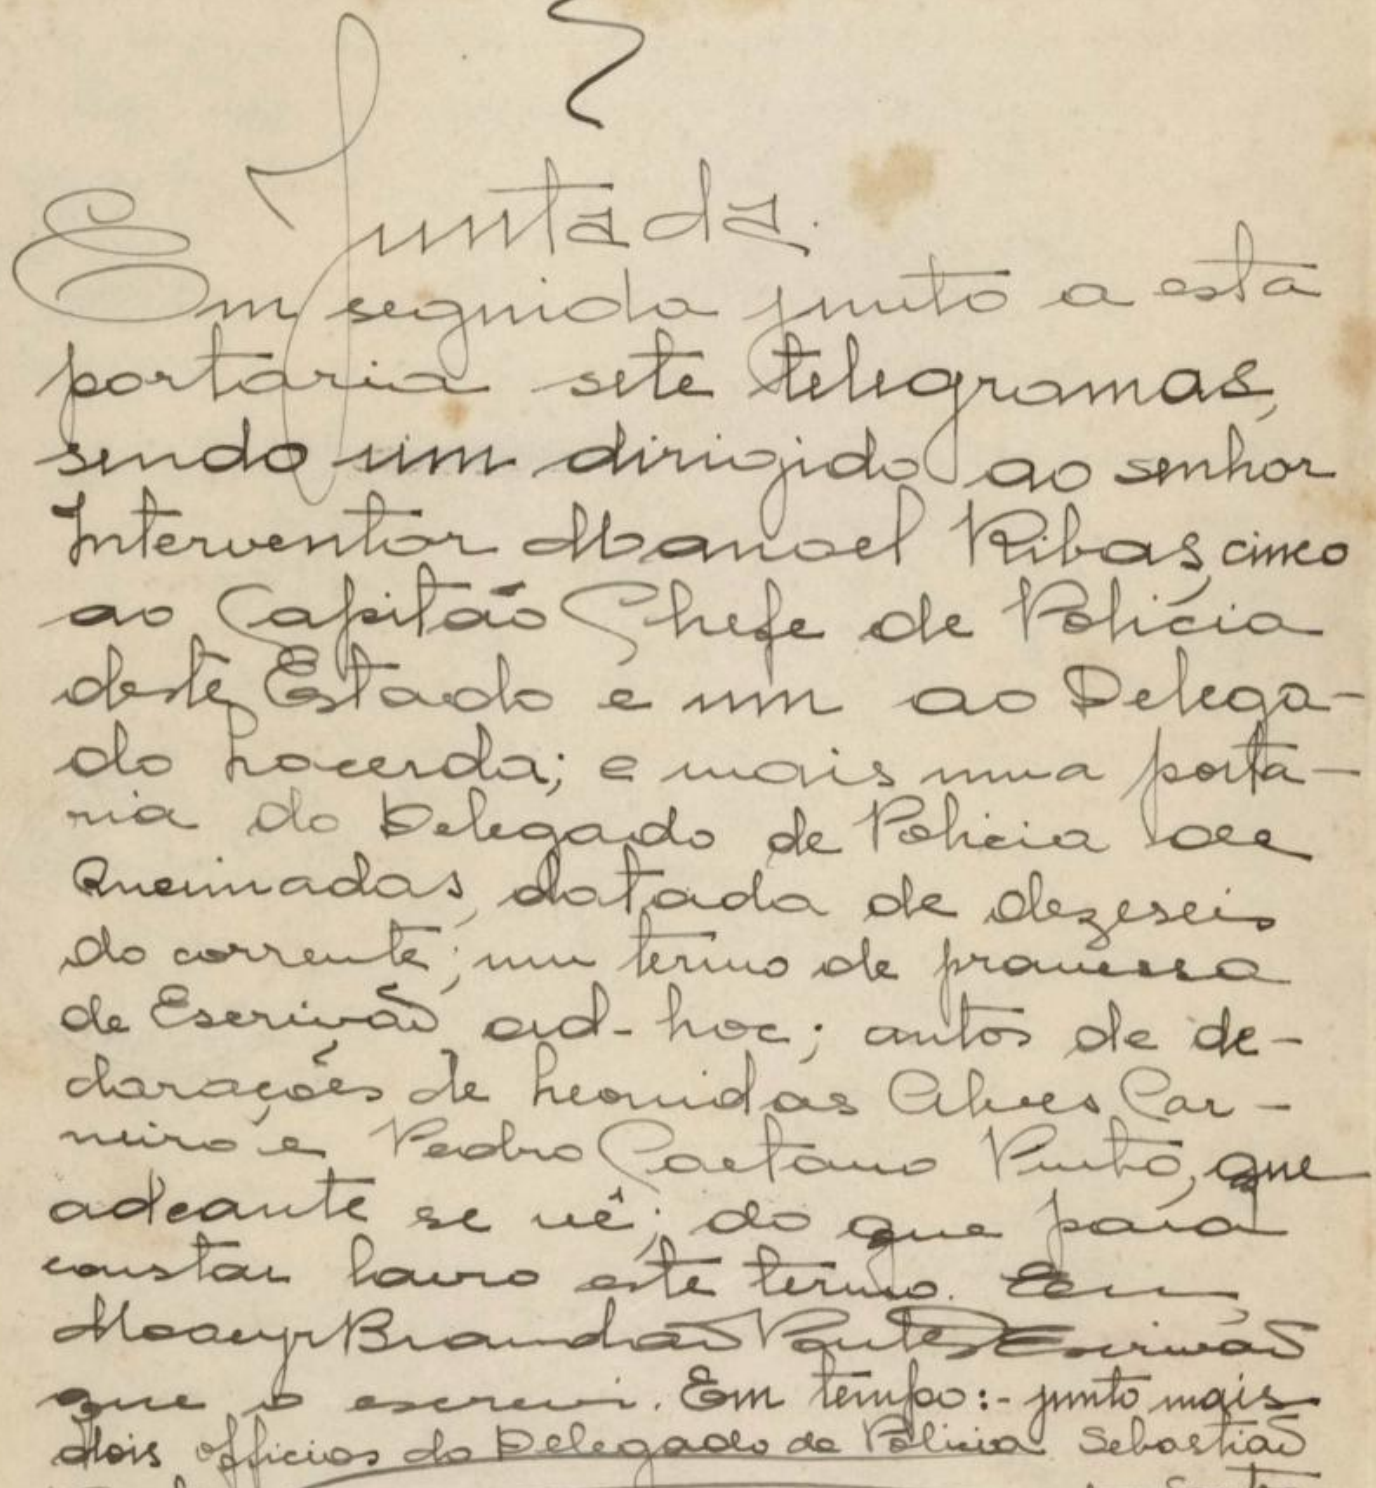 Juntada.
Em seguida junto a esta
portaria sete telegramas,
sendo um dirigido ao senhor
Interventor Manoel Ribas, cinco
ao Capitão Chefe de Policia
deste Estado e um ao Delega-
do Lacerda; e mais uma porta-
ria do Delegado de Policia de
Queimadas, datada de dezeseis
do corrente; um termo de promessa
de Escrivão ad-hoc; autos de de-
clarações de Leonidas Alves Car-
neiro e Pedro Caetano Pinto, que
adeante se vê; do que para
constar lavro este termo. Eu,
Moacyr Brandão Escrivão
que o escrevi. Em tempo:- junto mais
dois officios do Delegado de Policia Sebastião